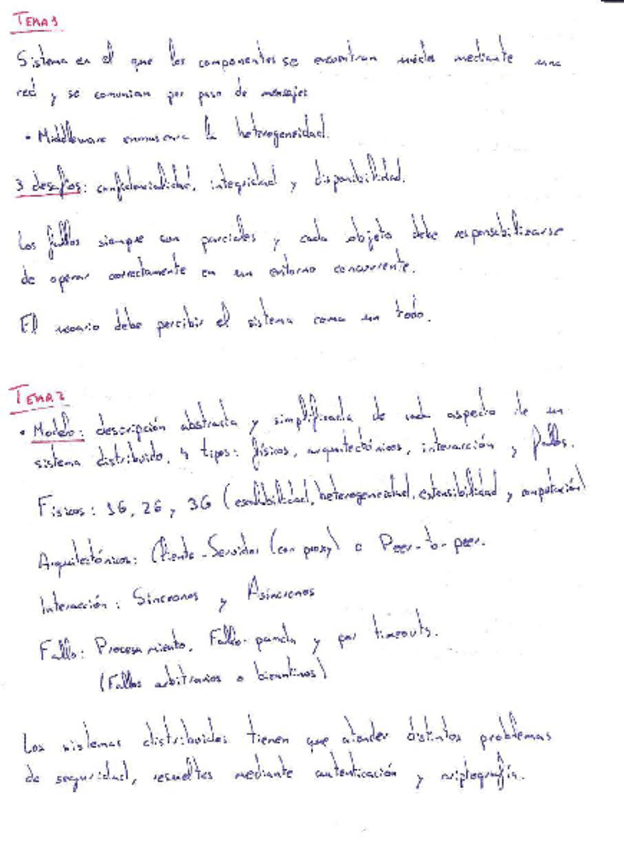 TEMA 1
Sistema en el que los componentes se encuentran unidos mediante una
red y se comunican por paso de mensajes
• Middleware enmascara la heterogeneidad.
3 desafíos: confidencialidad, integridad y disponibilidad.
Los fallos siempre son parciales y cada objeto debe responsabilizarse
de operar correctamente en un entorno concurrente.
El usuario debe percibir el sistema como un todo.
TEMA 2
• Modelo: descripción abstracta y simplificada de cada aspecto de un
sistema distribuido. 4 tipos: físicos, arquitectónicos, interacción y fallos.
Físicos: 1G, 2G y 3G (escalabilidad, heterogeneidad, extensibilidad y computación)
Arquitectónicos: Cliente-Servidor (con proxy) o Peer-to-peer.
Interacción: Síncronos y Asíncronos
Fallo: Procesamiento, Fallo-parada y por timeouts.
(Fallos arbitrarios o bizantinos)
Los sistemas distribuidos tienen que atender distintos problemas
de seguridad, resueltos mediante autenticación y criptografía.